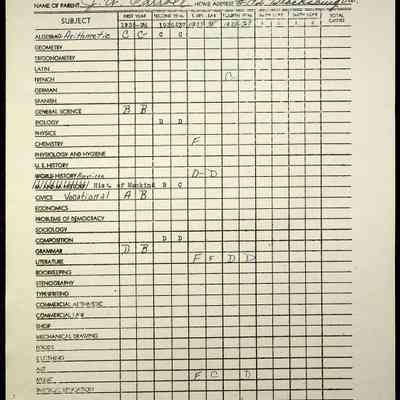 NAME OF PARENT J. W. HOME ADDRESS
SUBJECT FIRST YEAR SECOND YEAR FOURTH YEAR TOTAL CREDITS
ALGEBRA Arithmetic C C
GEOMETRY
TRIGONOMETRY
LATIN
FRENCH
GERMAN
SPANISH
GENERAL SCIENCE B B
BIOLOGY D D
PHYSICS
CHEMISTRY F
PHYSIOLOGY AND HYGIENE
U. S. HISTORY
WORLD HISTORY D- D
Hist. of Mankind B C
CIVICS Vocational A B
ECONOMICS
PROBLEMS OF DEMOCRACY
SOCIOLOGY
COMPOSITION D D
GRAMMAR D B
LITERATURE F F D D
BOOKKEEPING
STENOGRAPHY
TYPEWRITING
COMMERCIAL ARITHMETIC
COMMERCIAL LAW
SHOP
MECHANICAL DRAWING
FOODS
CLOTHING
ART
MUSIC F C D
PHYSICAL EDUCATION